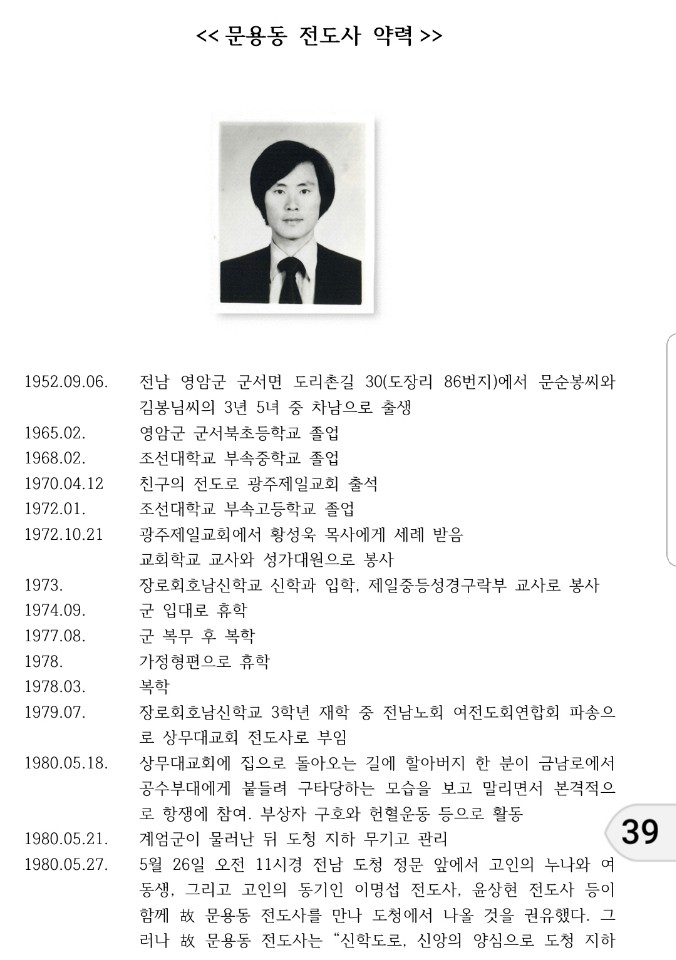 << 문용동 전도사 약력 >>
1952.09.06. 전남 영암군 군서면 도리촌길 30(도장리 86번지)에서 문순봉씨와
김봉님씨의 3년 5녀 중 차남으로 출생
1965.02. 영암군 군서북초등학교 졸업
1968.02. 조선대학교 부속중학교 졸업
1970.04.12 친구의 전도로 광주제일교회 출석
1972.01. 조선대학교 부속고등학교 졸업
1972.10.21 광주제일교회에서 황성욱 목사에게 세례 받음
교회학교 교사와 성가대원으로 봉사
1973. 장로회호남신학교 신학과 입학, 제일중등성경구락부 교사로 봉사
1974.09. 군 입대로 휴학
1977.08. 군 복무 후 복학
1978. 가정형편으로 휴학
1978.03. 복학
1979.07. 장로회호남신학교 3학년 재학 중 전남노회 여전도회연합회 파송으
로 상무대교회 전도사로 부임
1980.05.18. 상무대교회에 집으로 돌아오는 길에 할아버지 한 분이 금남로에서
공수부대에게 붙들려 구타당하는 모습을 보고 말리면서 본격적으
로 항쟁에 참여. 부상자 구호와 헌혈운동 등으로 활동
1980.05.21. 계엄군이 물러난 뒤 도청 지하 무기고 관리
1980.05.27. 5월 26일 오전 11시경 전남 도청 정문 앞에서 고인의 누나와 여
동생, 그리고 고인의 동기인 이명섭 전도사, 윤상현 전도사 등이
함께 故 문용동 전도사를 만나 도청에서 나올 것을 권유했다. 그
러나 故 문용동 전도사는 “신학도로, 신앙의 양심으로 도청 지하
39